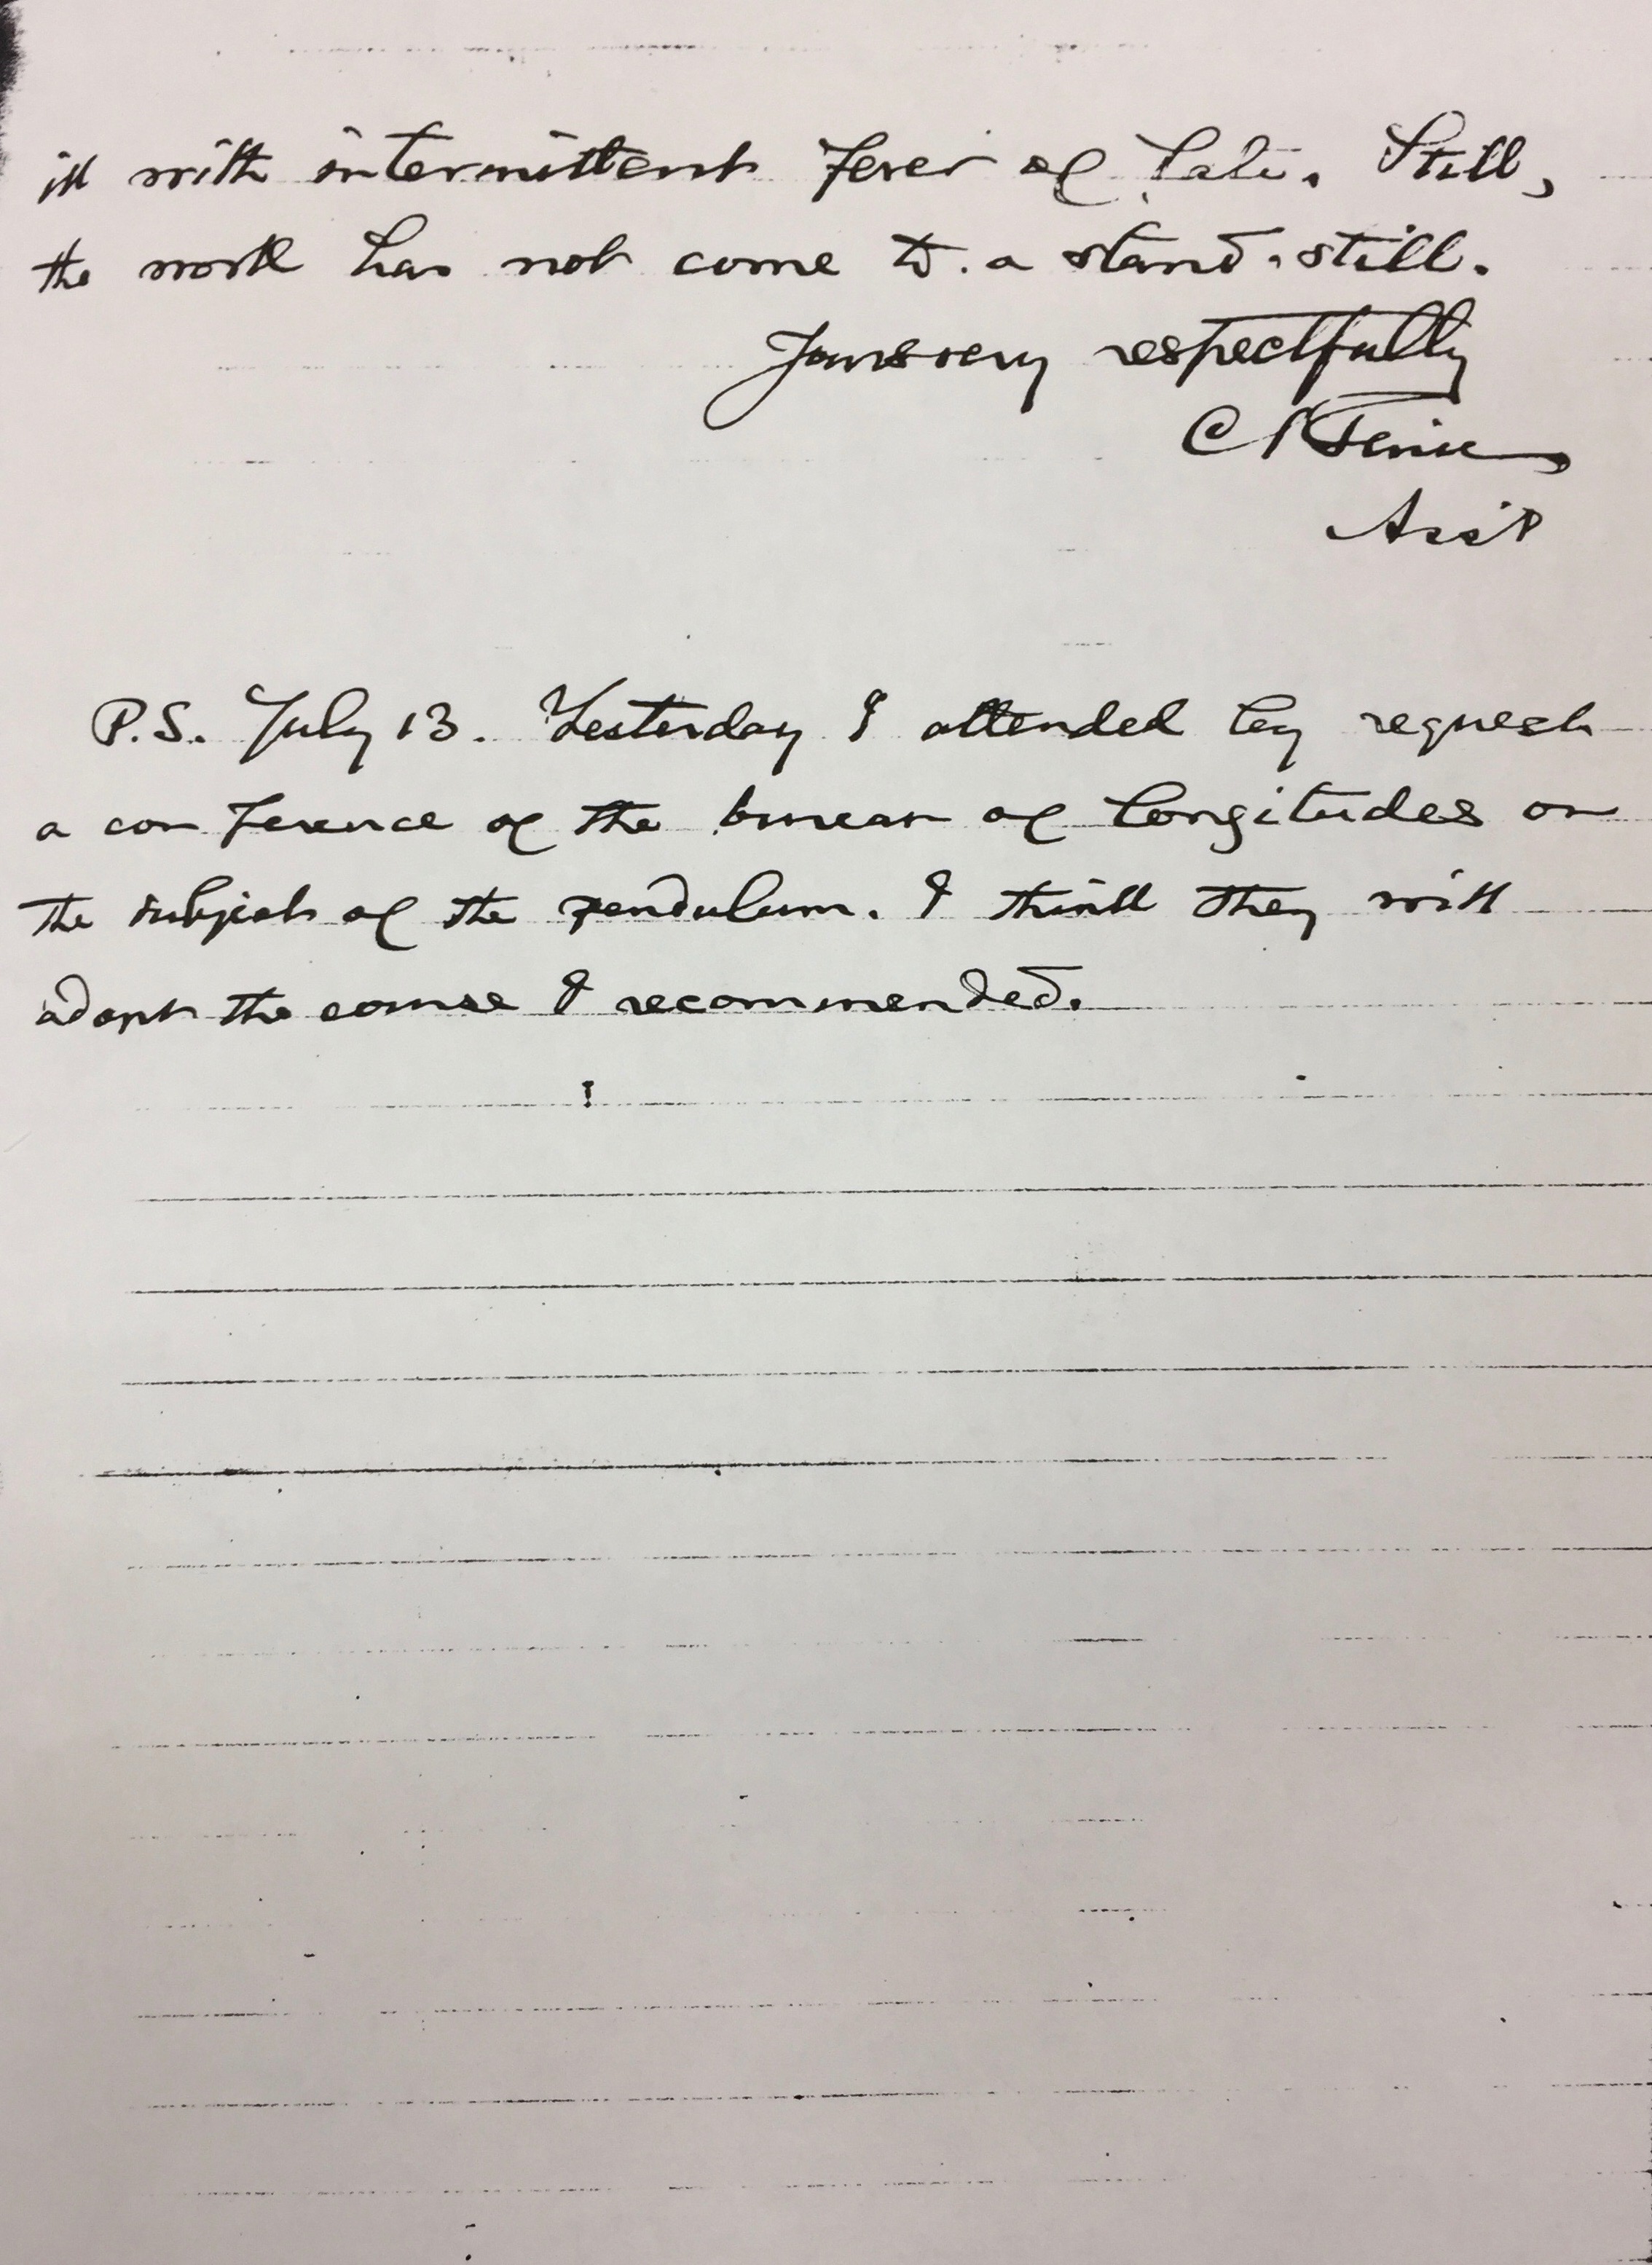 ill with intermittent fever of late. Still,
the work has not come to a stand-still.
Yours very respectfully
C S Peirce
Ass't
P.S. July 13. Yesterday I attended by request
a conference of the bureau of longitudes on
the subject of the pendulum. I think they will
adopt the course I recommended.